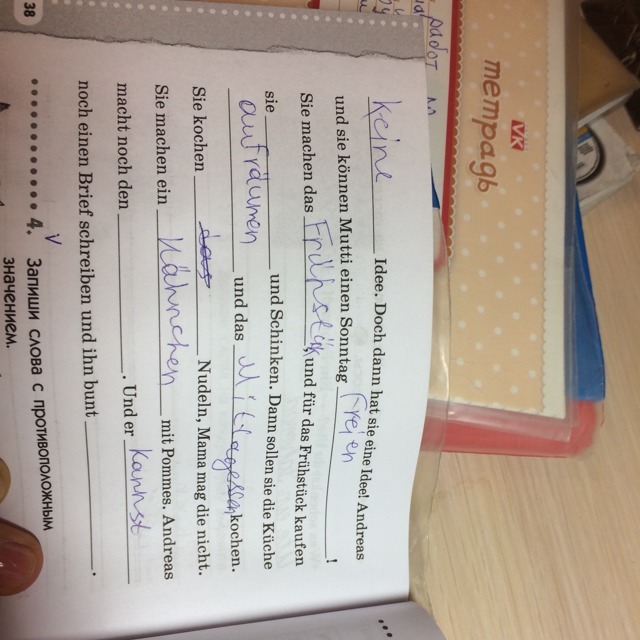 38
Keine Idee. Doch dann hat sie eine Idee! Andreas
und sie können Mutti einen Sonntag freien !
Sie machen das Frühstük und für das Frühstück kaufen
sie und Schinken. Dann sollen sie die Küche
aufräumen und das Mittagessen kochen.
Sie kochen das Nudeln, Mama mag die nicht.
Sie machen ein Hähnchen mit Pommes. Andreas
macht noch den . Und er kannst
noch einen Brief schreiben und ihn bunt .
4. Запиши слова с противоположным
значением.
VK
тетрадь
работ